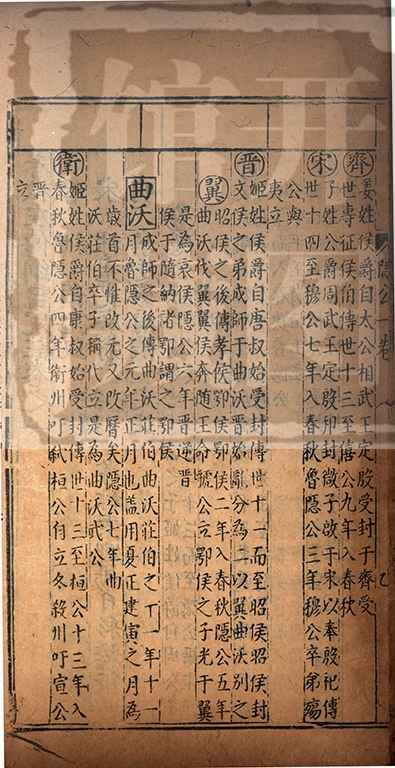 隱公一卷
齊
姜姓侯爵自太公相武王定殷受封于齊受
世專征侯伯傳世十三至僖公九年入春秋
宋
子姓公爵周武王定殷即封微子啟于宋以奉殷祀傳
世十四至穆公七年入春秋魯隱公三年穆公卒弟殤
公與夷立
晉
姬姓侯爵自唐叔始受封傳世十一而至昭侯昭侯封
文侯之弟成師于曲沃晉始亂分為二以翼曲沃別之
翼
昭侯之後傳孝侯鄂侯鄂侯二年入春秋隱公五年
曲沃伐翼翼侯奔随王命虢公立鄂侯之子光于翼
是為哀侯隱公六年晉逆晉
侯于隨納諸鄂謂之鄂侯
曲沃
成師之後傳曲沃莊伯曲沃莊伯之丁一年十一
月魯隱公之元年正月也蓋用夏正建寅之月為
歲首不惟改元又改曆矣隱公七年曲
沃莊伯卒子稱代立是為曲沃武公
衛
姬姓侯爵自康叔始受封傳世十三至桓公十三年入
春秋魯隱公四年衛州吁弒桓公自立冬殺州吁宣公
晉立